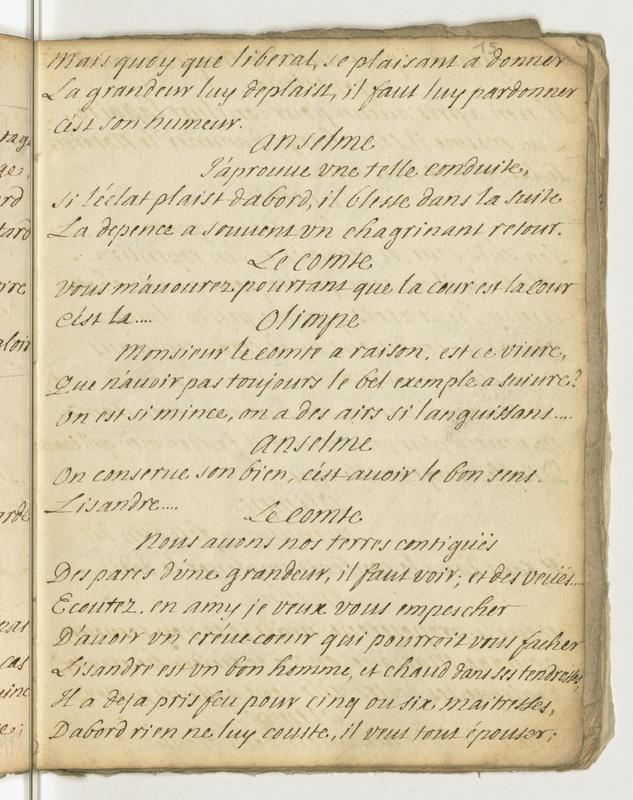 15
Mais quoy que liberal, se plaisant a donner
La grandeur luy deplaist, il faut luy pardonner
c'est son humeur.
anselme
J'aprouue vne telle conduite,
si l'éclat plaist dabord, il blesse dans la suite
La depence a souuent vn chagrinant retour.
Le comte
vous m'auourez pourtant que la cour est la cour
c'est la....
Olimpe
Monsieur le comte a raison, est ce viure,
Que n'auoir pas toujours le bel exemple a suiure?
on est si mince, on a des airs si languissans....
anselme
On conserue son bien, c'est auoir le bon sens.
Lisandre....
Le comte
Nous auons nos terres contigüës
Des parcs d'vne grandeur, il faut voir; et des veües....
Ecoutez. en amy je veux vous empescher
D'auoir vn créue coeur qui pourroit vous facher
Lisandre est vn bon homme, et chaud dans ses tendresses,
Il a deja pris feu pour cinq ou six maitresses,
Dabord rien ne luy couste, il veut tout épouser;